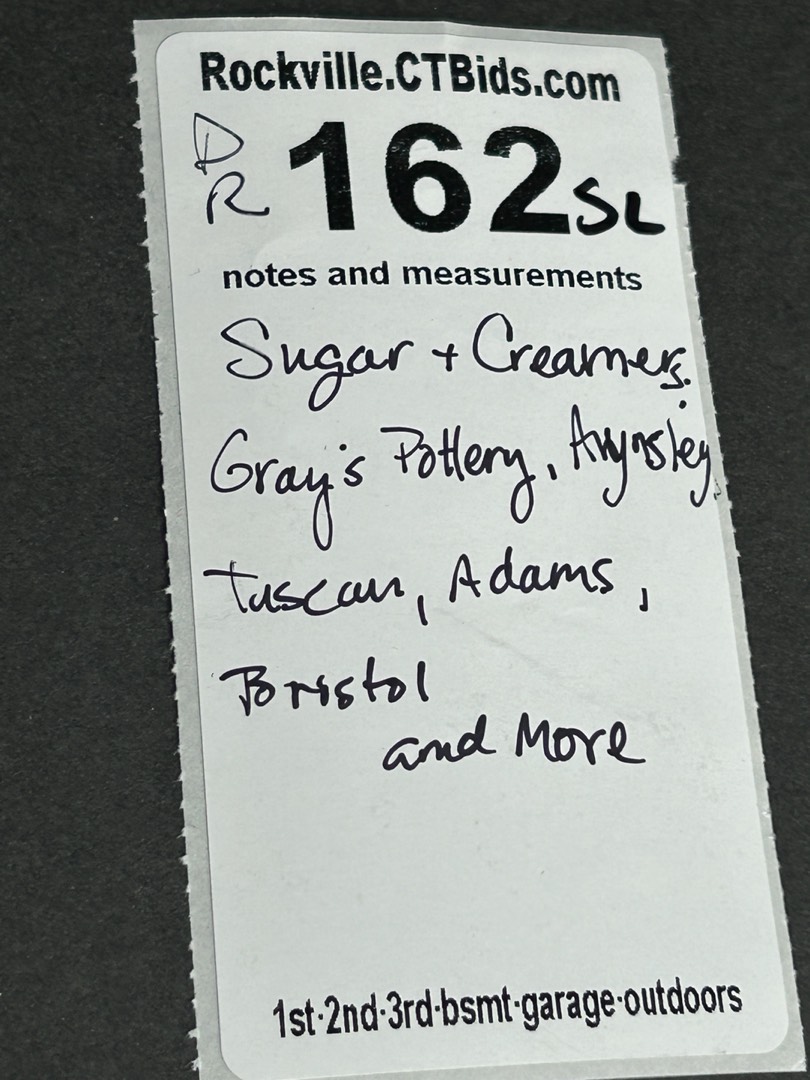 Rockville.CTBids.com
DR 162SL
notes and measurements
Sugar + Creamers.
Gray's Pottery, Aynsley,
Tuscan, Adams,
Bristol
and More
1st·2nd·3rd·bsmt·garage·outdoors